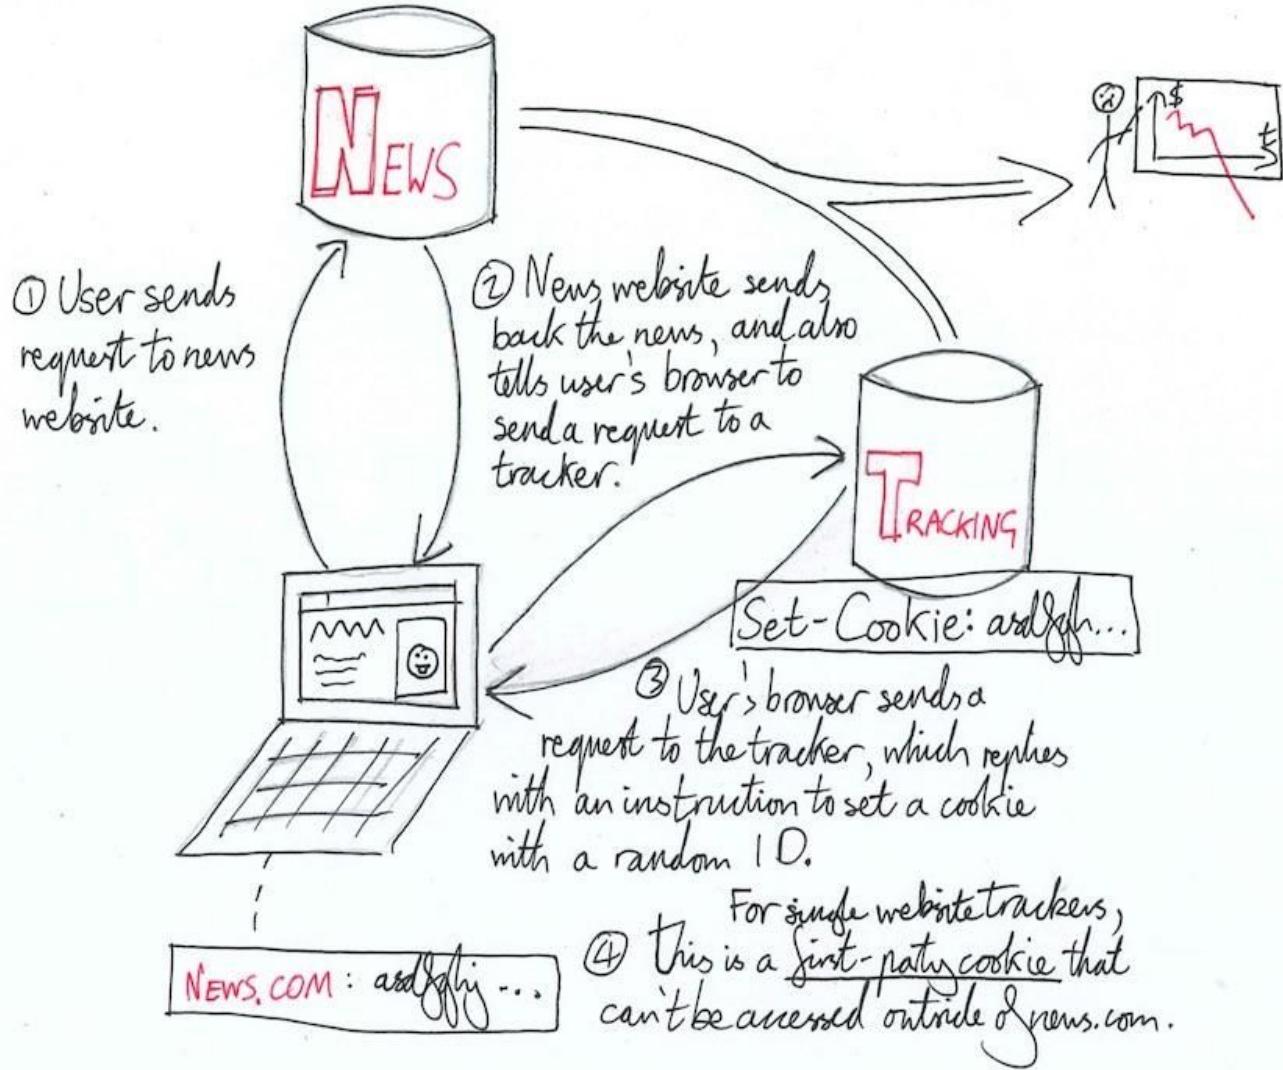 NEWS
$
t
① User sends
request to news
website.
② News website sends
back the news, and also
tells user's browser to
send a request to a
tracker.
TRACKING
Set-Cookie: asdfgh...
③ User's browser sends a
request to the tracker, which replies
with an instruction to set a cookie
with a random ID.
For single website trackers,
④ this is a first-paty cookie that
can't be accessed outside of news.com.
NEWS.COM: asdfghj...